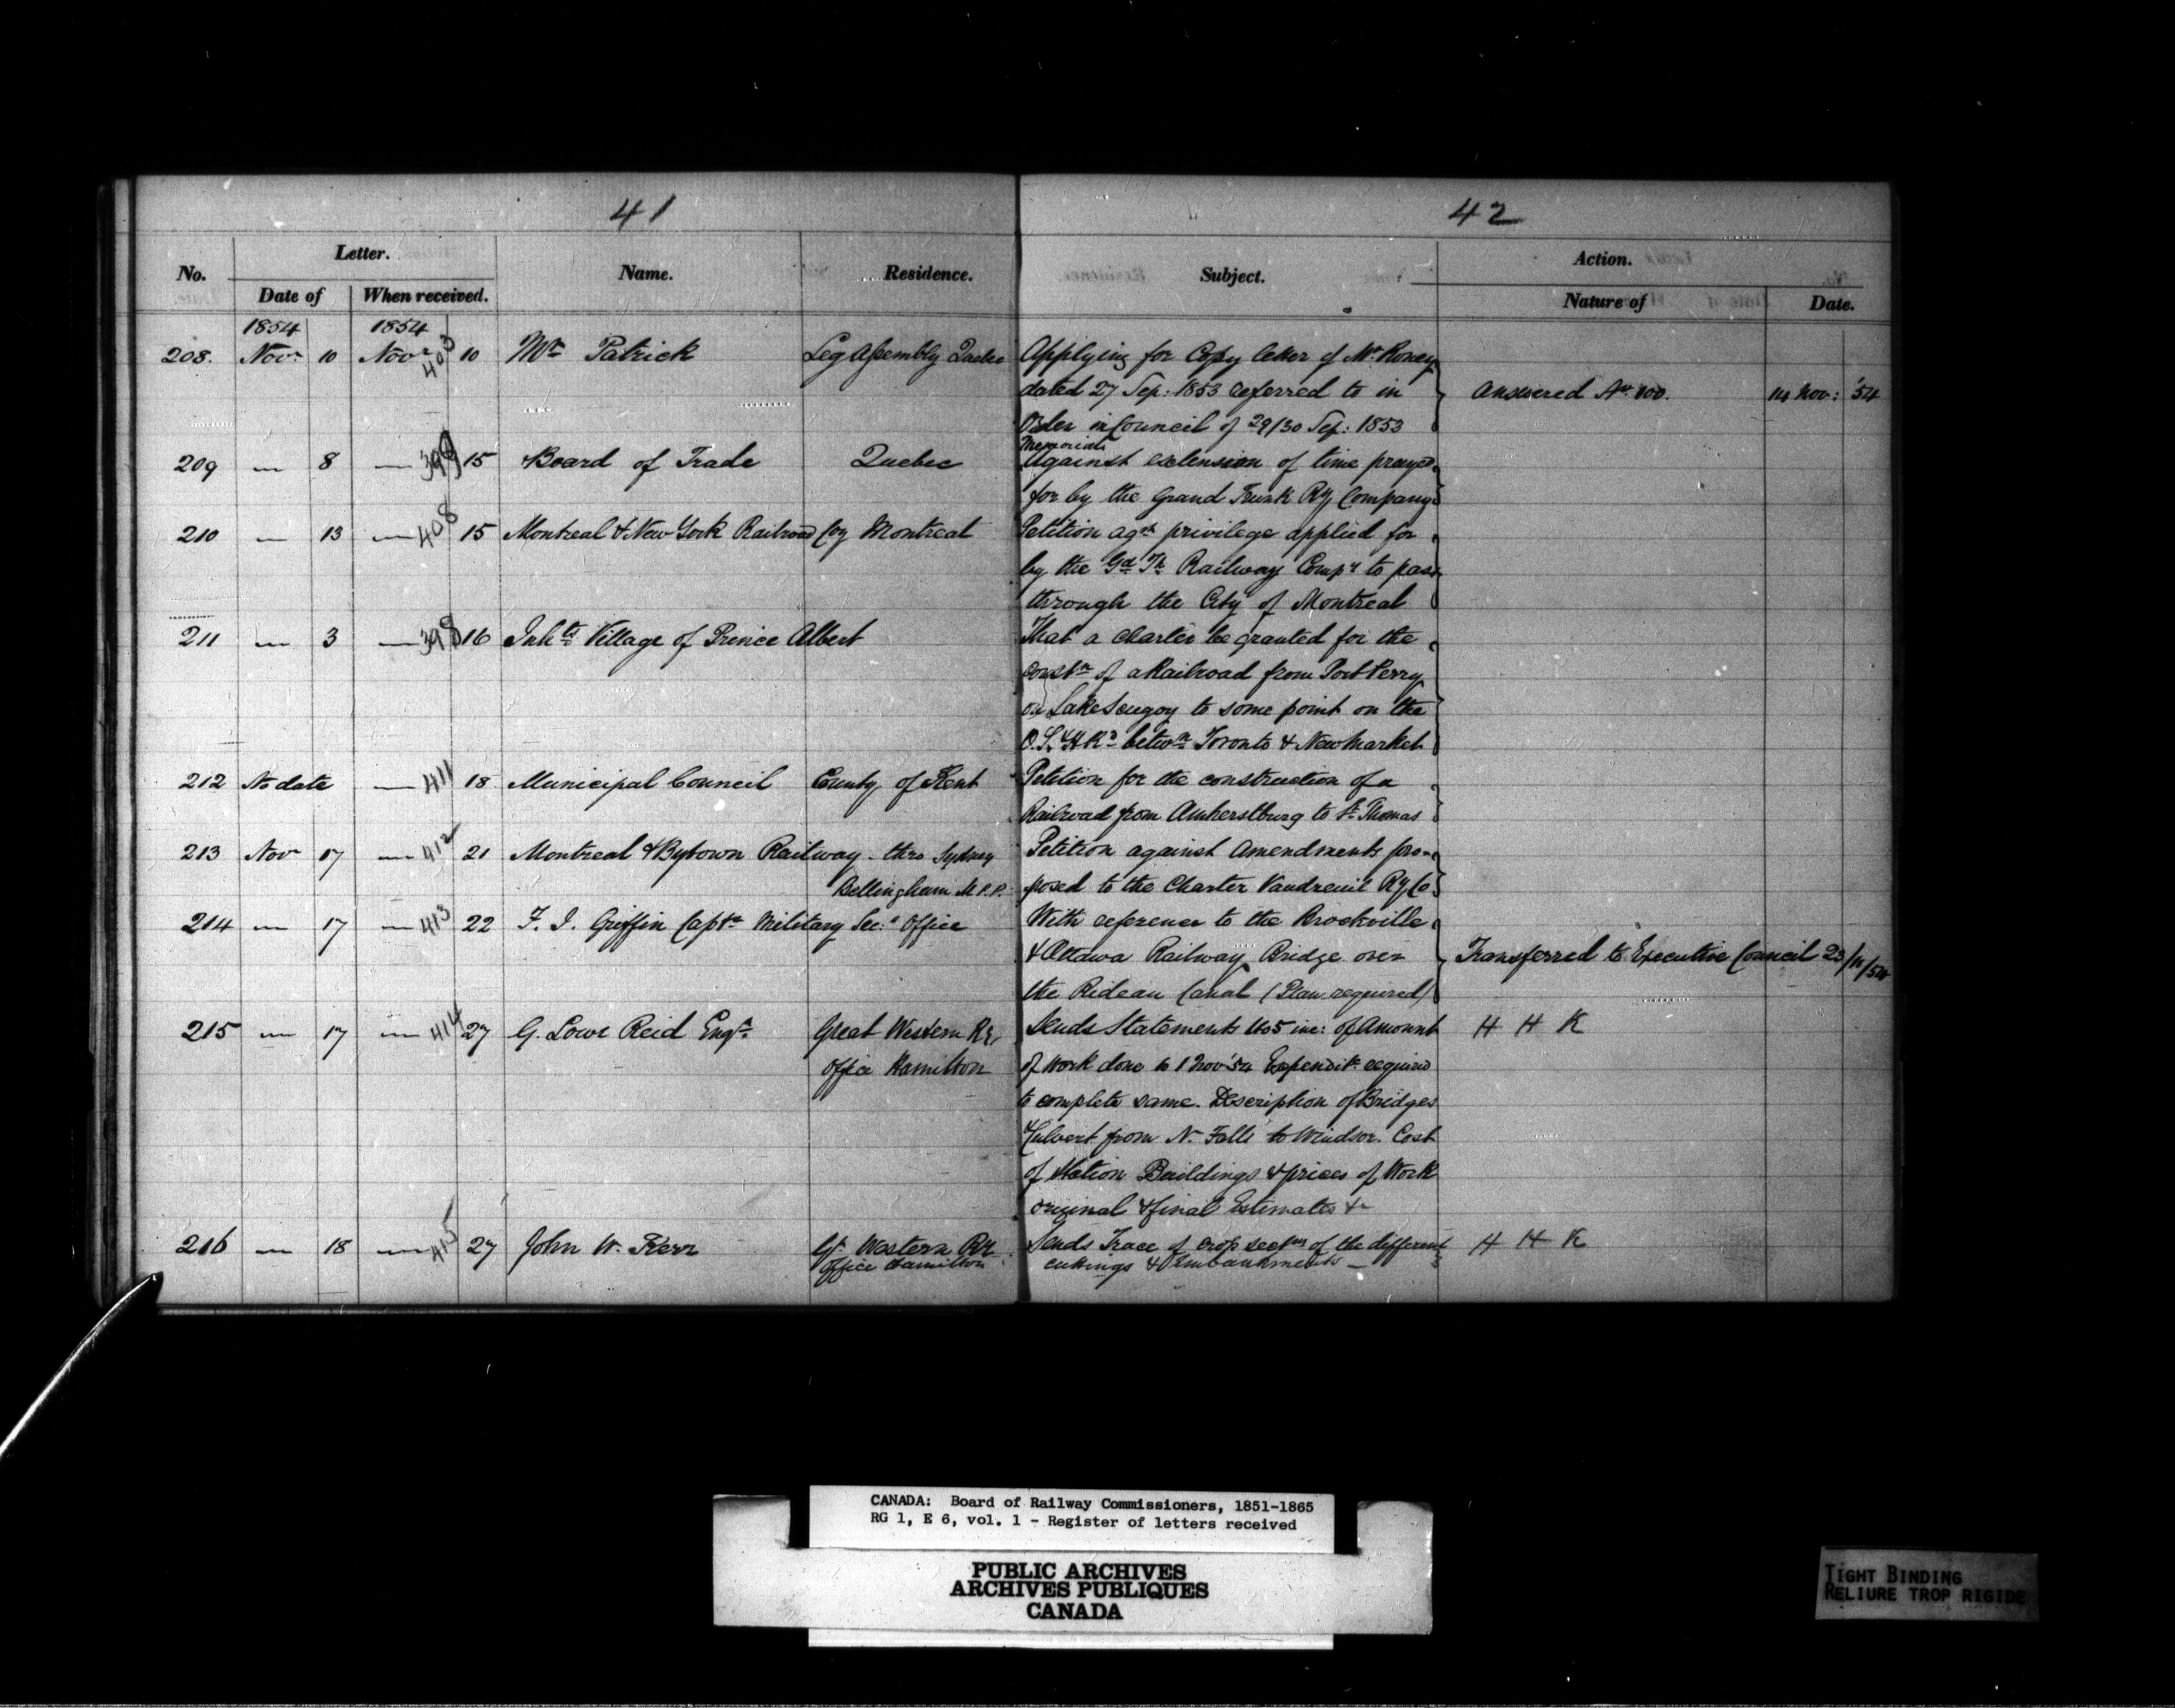 41
42
No. Letter. Name. Residence. Subject. Action.
Date of When received. Nature of Date.
1854 1854
208. Novr 10 Novr 403 10 Mr Patrick Leg Assembly Quebec Applying for Copy letter of Mr Roney
dated 27 Sep: 1853 referred to in Answered 14 Nov: '54
Order in Council of 29/30 Sep: 1853
Memorial
209 — 8 — 399 15 Board of Trade Quebec Against extension of time prayed
for by the Grand Trunk Ry Company
210 — 13 — 408 15 Montreal & New York Railroad Coy Montreal Petition agst privilege applied for
by the Gd Tk Railway Compy to pass
through the City of Montreal
211 — 3 — 398 16 Inhts Village of Prince Albert That a charter be granted for the
constn of a Railroad from Port Perry
on Lake Scugog to some point on the
O.S.&H Rd betwn Toronto & Newmarket
212 No date — 411 18 Municipal Council County of Kent Petition for the construction of a
Railroad from Amherstburg to St Thomas
213 Novr 17 — 412 21 Montreal & Bytown Railway - thro Sydney Petition against Amendments pro-
Bellingham M.P.P. posed to the Charter Vaudreuil Ry Co
214 — 17 — 413 22 F. I. Griffin Captn Military Sec:s Office With reference to the Brockville
& Ottawa Railway Bridge over Transferred to Executive Council 23/11/54
the Rideau Canal (Plan required)
215 — 17 — 414 27 G. Lowe Reid Engr Great Western Ry Sends Statements 1 to 5 inc: of Amount H H K
Office Hamilton of Work done to 1 Nov '54 Expendit: required
to complete same. Description of Bridges
& Culvert from N. Falls to Windsor. Cost
of Station Buildings & prices of Work
original & final Estimates &c
216 — 18 — 415 27 John W. Kerr Gt Western RR Sends Trace of crop sectns of the different H H K
Office Hamilton cuttings & Embankments —
CANADA: Board of Railway Commissioners, 1851-1865
RG 1, E 6, vol. 1 - Register of letters received
PUBLIC ARCHIVES
ARCHIVES PUBLIQUES
CANADA
TIGHT BINDING
RELIURE TROP RIGIDE